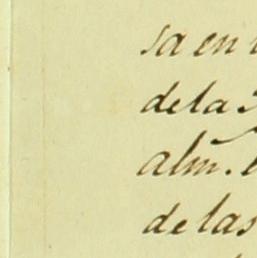 sa en
de la
alm.
de las